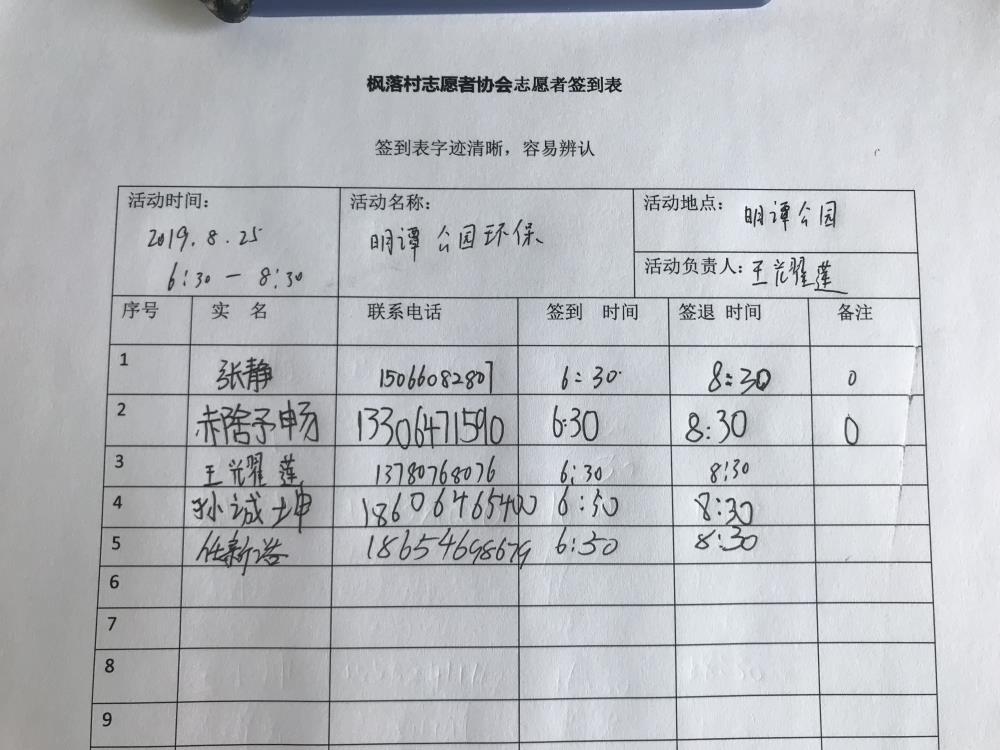 枫落村志愿者协会志愿者签到表
签到表字迹清晰，容易辨认
活动时间： 活动名称： 活动地点： 明谭公园
2019.8.25 明谭公园环保
6:30 — 8:30 活动负责人：王光耀莲
序号 实 名 联系电话 签到 时间 签退 时间 备注
1 张静 15066082807 6:30 8:30 0
2 赤陰予畅 13306471590 6:30 8:30 0
3 王光耀莲 13780768076 6:30 8:30
4 孙诚坤 18606465400 6:30 8:30
5 任新诺 18654698679 6:30 8:30
6
7
8
9